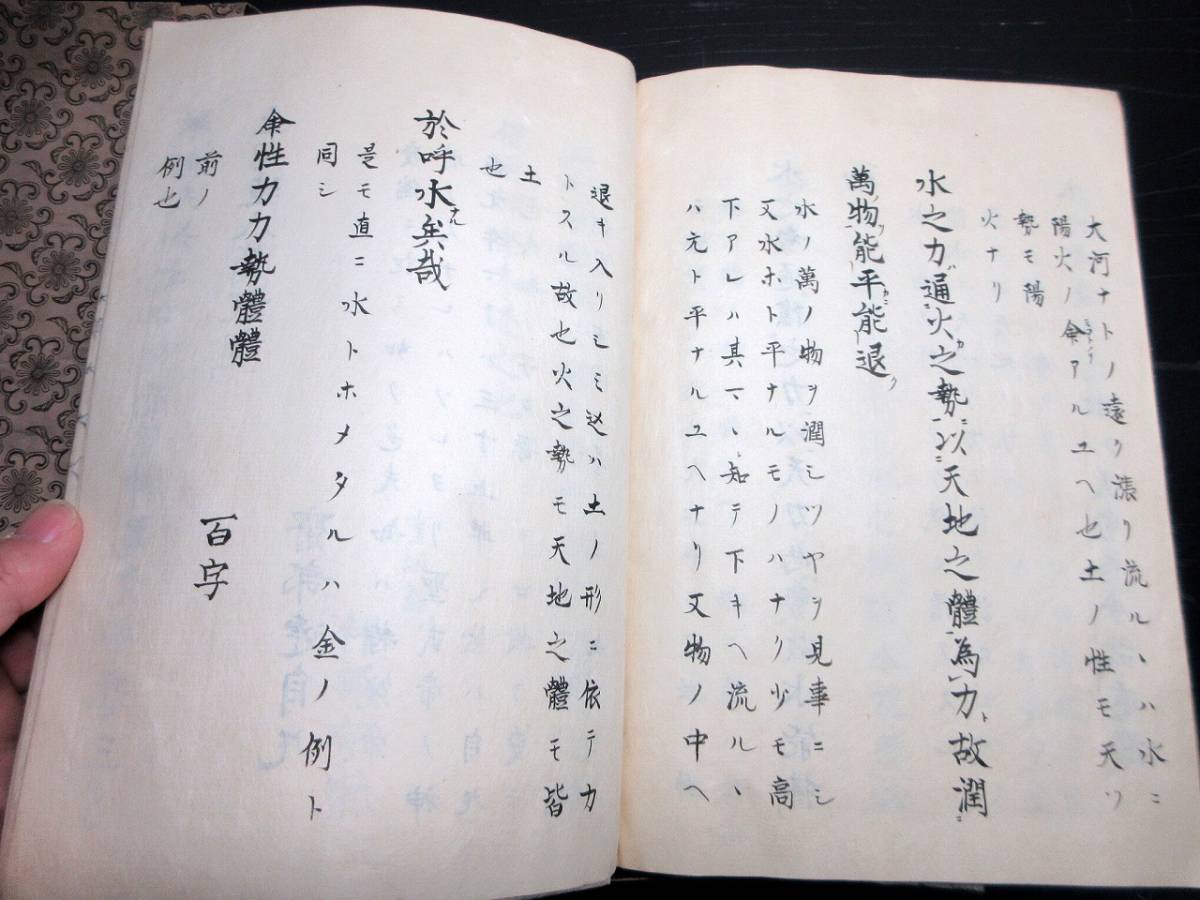 大河ナトノ遠ク漲リ流ルヽハ水ニ
陽火ノ余アルユヘ也土ノ性モ天ソ
勢モ陽
火ナリ
水之力通火之勢以天地之體為力故潤
萬物能平能退
水ノ萬ノ物ヲ潤シツヤヤシ見事ニシ
又水ホト平ナルモノハナリ少モ高
下アレハ其マヽ知テ下キヘ流ルヽ
ハ元ト平ナルユヘナリ又物ノ中ヘ
退キ入リシミ込ハ土ノ形ニ依テカ
トスル故也火之勢モ天地之體モ皆
土
也
於呼水矣哉
是モ直ニ水トホメタルハ金ノ例ト
同シ
余性力力勢體體
前ノ
例也
一百字